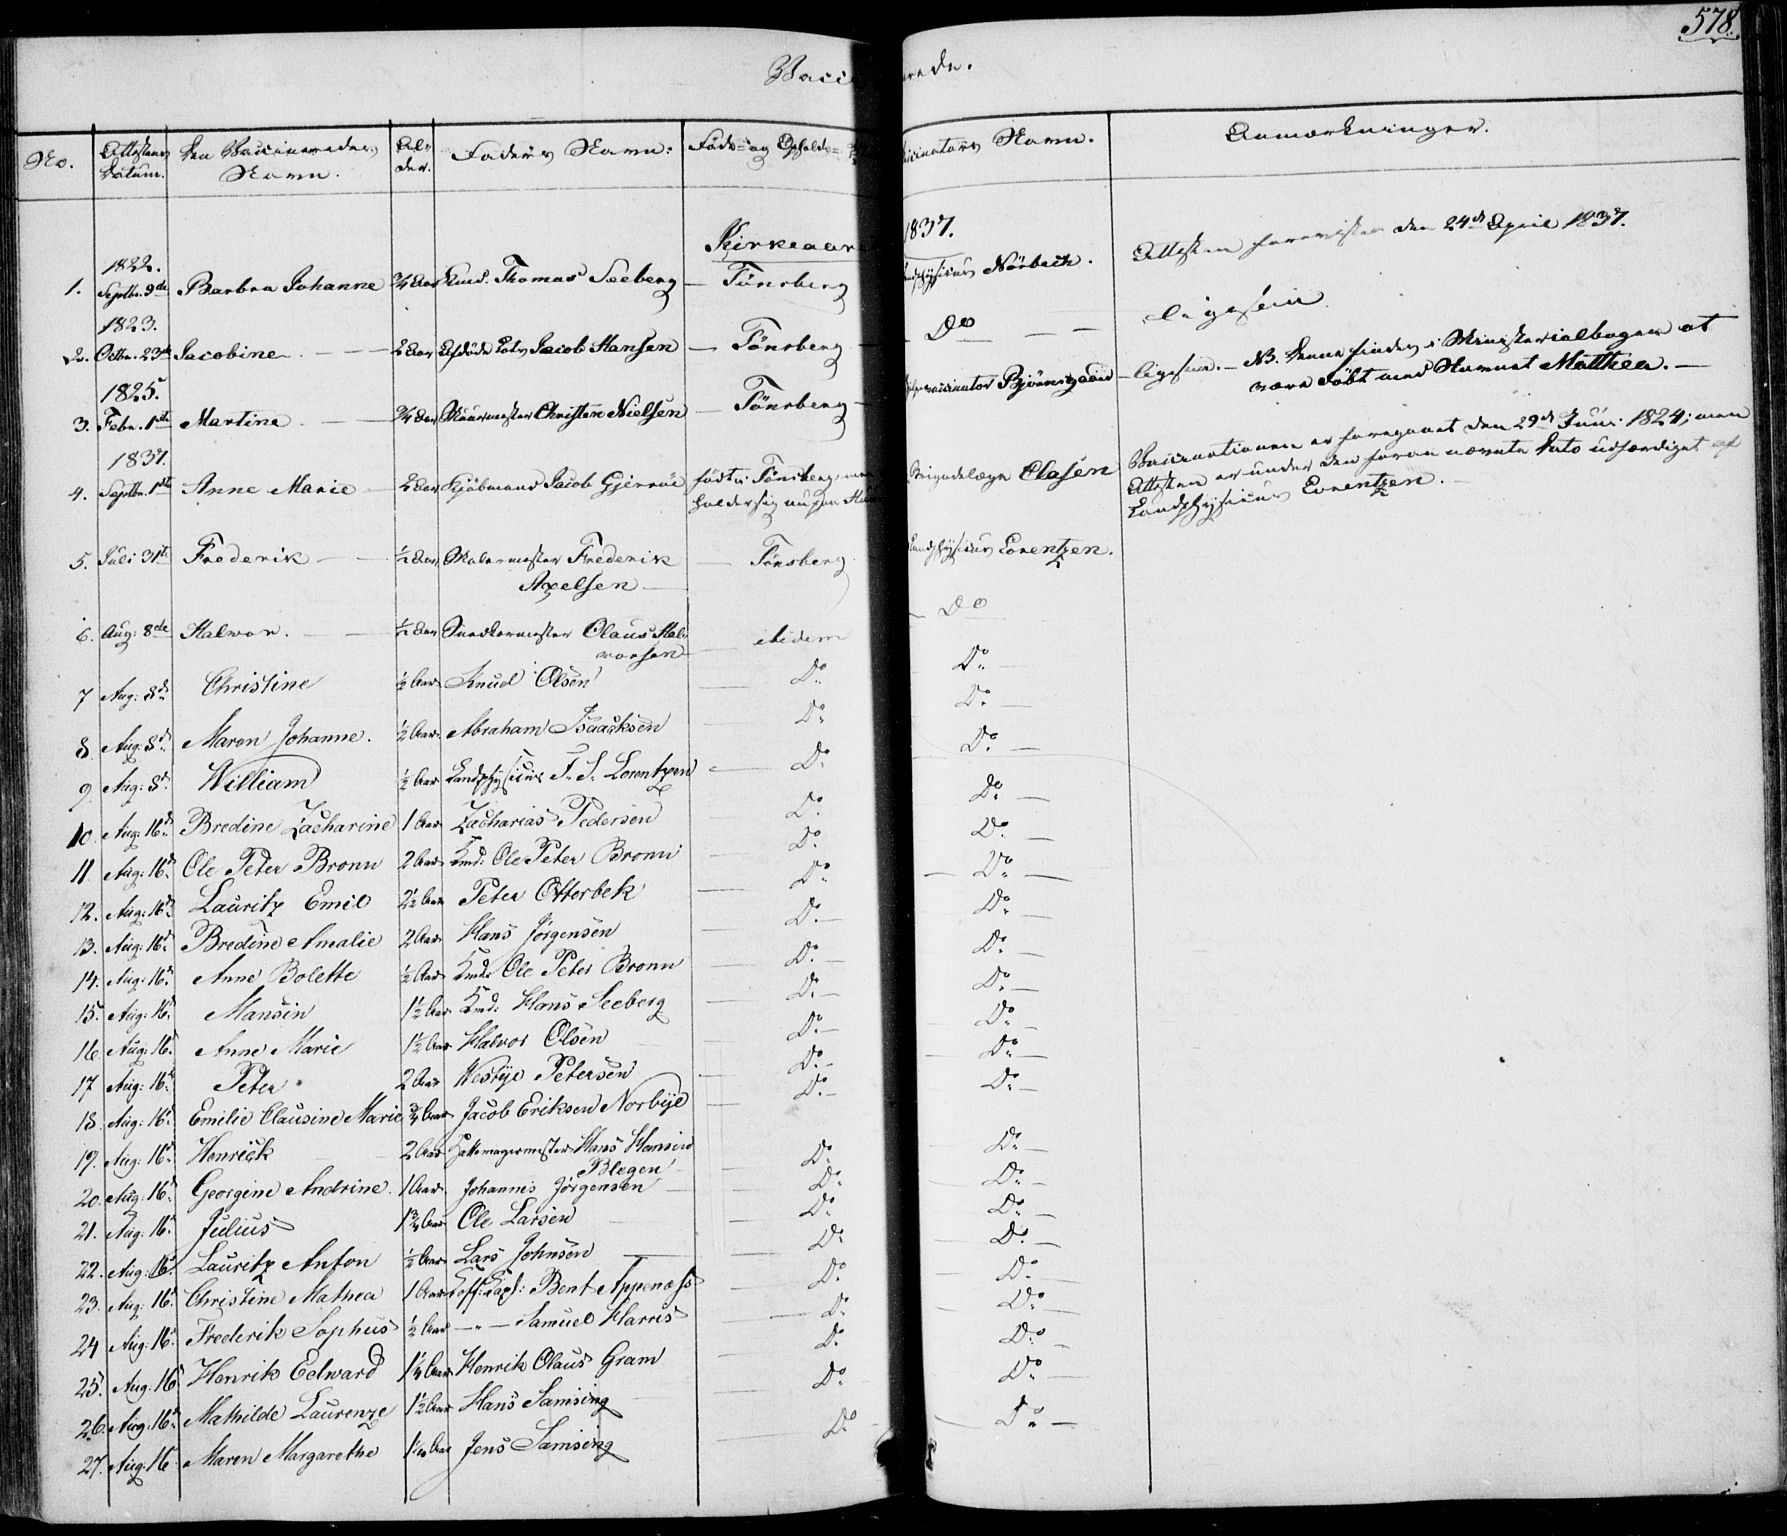 578.
Vacci rede.
No. Attestens Datum. Den Vaccineredes Navn. Al- der. Faders Navn: Føde- og Opholds- Vaccinators Navn. Anmærkninger.
Kirkeaar 1837.
1822.
1. Septbr. 9de Barbra Johanne ¾ Aar Kmd. Thomas Seeberg — Tönsberg Landphysicus Nörbech. Attesten foreviist den 24de April 1837.
1823.
2. Octbr. 23de Jacobine — 2 Aar Afdøde Jacob Hansen — Tönsberg — Do — ligesom
1825.
3. Febr. 1ste Martine — ¾ Aar Muurmester Christen Nielsen — Tönsberg — Björnsgaard — ligesom. — NB. Denne findes i Ministerialbogen at
være döbt med Navnet Matthea. —
1837.
4. Septbr. 1ste Anne Marie — 2 Aar Kjöbmand Jacob Gjerrüe född i Tönsberg, men Brigadelæge Clasen Vaccinationen er foregaaet den 29de Juni 1824; men
holder sig nu paa Attesten er under den foran nævnte Dato udfærdiget af
Landphysicus Lorentzen. —
5. Juli 31te Frederik — ½ Aar Malermester Frederik — Tönsberg Landphysicus Lorentzen.
Axelsen —
6. Aug: 8de Halvor. — ½ Aar Snedkermester Olaus Hal- — ibidem — Do
vorsen
7 Aug: 8de Christine ½ Aar Knud Olsen — Do Do —
8 Aug: 8de Maren Johanne. ½ Aar Abraham Isaacksen — Do Do —
9. Aug: 8de William ½ Aar Landphysicus F. S. Lorentzen — Do Do —
10. Aug: 16de Bredine Zacharine 1 Aar Zacharias Pedersen — Do Do —
11. Aug: 16de Ole Peter Bronn 2 Aar Kmd: Ole Peter Bronn — Do Do —
12. Aug: 16de Lauritz Emil 2½ Aar Peter Otterbek — Do — Do —
13. Aug: 16de Bredine Amalie 2 Aar Hans Jörgensen — Do — Do —
14. Aug: 16de Anne Bolette ½ Aar Kmd: Ole Peter Bronn — Do — Do —
15. Aug: 16de Hansin 1½ Aar Kmd: Hans Seeberg — Do — Do —
16. Aug: 16de Anne Marie 1½ Aar Halvor Olsen — Do — Do —
17 Aug: 16de Peter 2 Aar Westye Petersen — Do — Do —
18. Aug: 16de Emilie Clausine Marie ¾ Aar Jacob Eriksen Norbye — Do — Do —
19. Aug: 16de Henrick 2 Aar Hattemagermester Hans Hansen — Do Do —
Blegen
20. Aug: 16de Georgine Andrine. 1 Aar. Johannes Jörgensen — Do Do —
21. Aug: 16de Julius 1¾ Aar Ole Larsen Do Do —
22. Aug: 16de Lauritz Anton ½ Aar Lars Johnsen — Do Do —
23. Aug: 16de Christine Mathea 1 Aar Koff: Capt: Bent Appenæss — Do Do —
24 Aug: 16de Frederik Sophus ½ Aar — " — Samuel Harris — Do Do —
25. Aug: 16de Henrik Edward 1¼ Aar Henrik Olaus Gram — Do Do —
26. Aug: 16de Mathilde Laurenze 1½ Aar Hans Samsing — Do Do —
27. Aug: 16 Maren Margarethe Aar Jens Samsing — Do — Do —